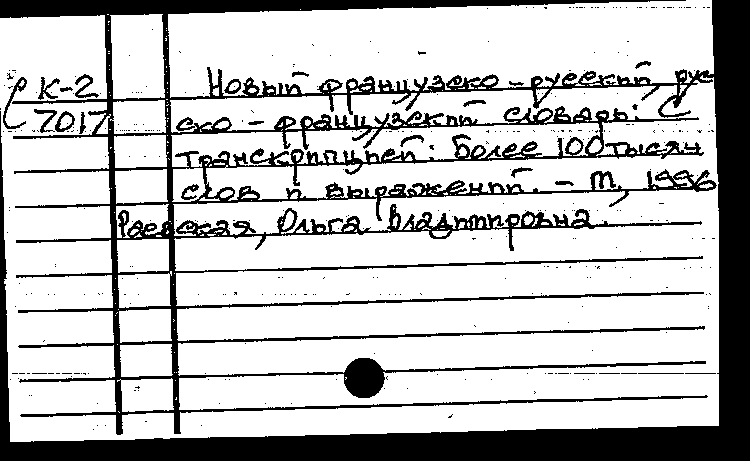 К-2 Новый французско-русский, рус
7017 ско-французский словарь: С
транскрипцией: Более 100 тысяч
слов и выражений. - М, 1996
Раевская, Ольга Владимировна.